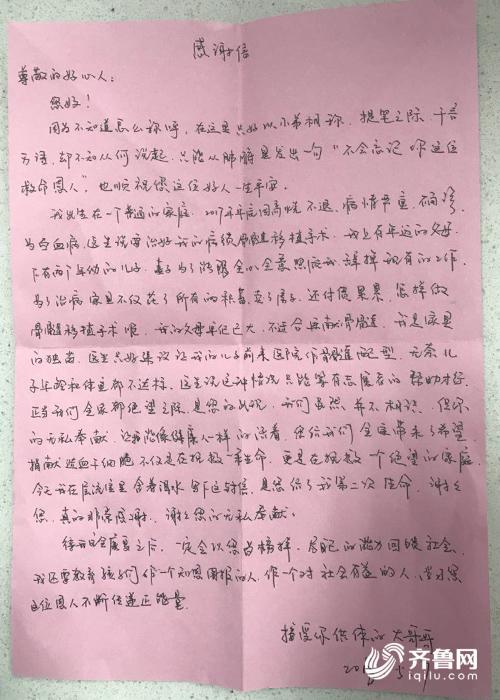 感谢信
尊敬的好心人：
您好！
因为不知道怎么称呼，在这里只好以小弟相称，提笔之际，千言
万语，却不知从何说起，只能从肺腑里发出一句“不会忘记你这位
救命恩人”，也顺祝您这位好人一生平安。
我出生在一个普通的家庭，2017年年底因高烧不退，病情严重，确诊
为白血病，医生说要治好我的病须骨髓移植手术，我上有年迈的父母，
下有两个年幼的儿子，妻子为了
为了治病家里不仅花了所有的积蓄，卖了房子，还付债累累，怎样做
骨髓移植手术呢，我的父母年纪已大，不适合再献骨髓，我是家里
的独苗，医生只好建议让我的儿子前来医院作骨髓配型，无奈儿
子年龄和体重都不达标，医生说这种情况只能等有志愿者的帮助才行，
正当我们全家都绝望之际，是您的出现，我们虽然并不相识，但你
的无私奉献，让我能像健康人一样的活着，您给我们全家带来了希望，
捐献造血干细胞不仅是在拯救一条生命，更是在拯救一个绝望的家庭，
今天我在层流室里含着泪水写下这封信，是您给了我第二次生命，谢谢
您，真的非常感谢，谢谢您的无私奉献。
待我康复之后，一定会以您为榜样，尽自己的能力回馈社会，
我还要教育孩子们作一个知恩图报的人，作一个对社会有益的人，
这位恩人不断传递正能量。
接受你供体的大哥哥
齐鲁网
iqilu.com